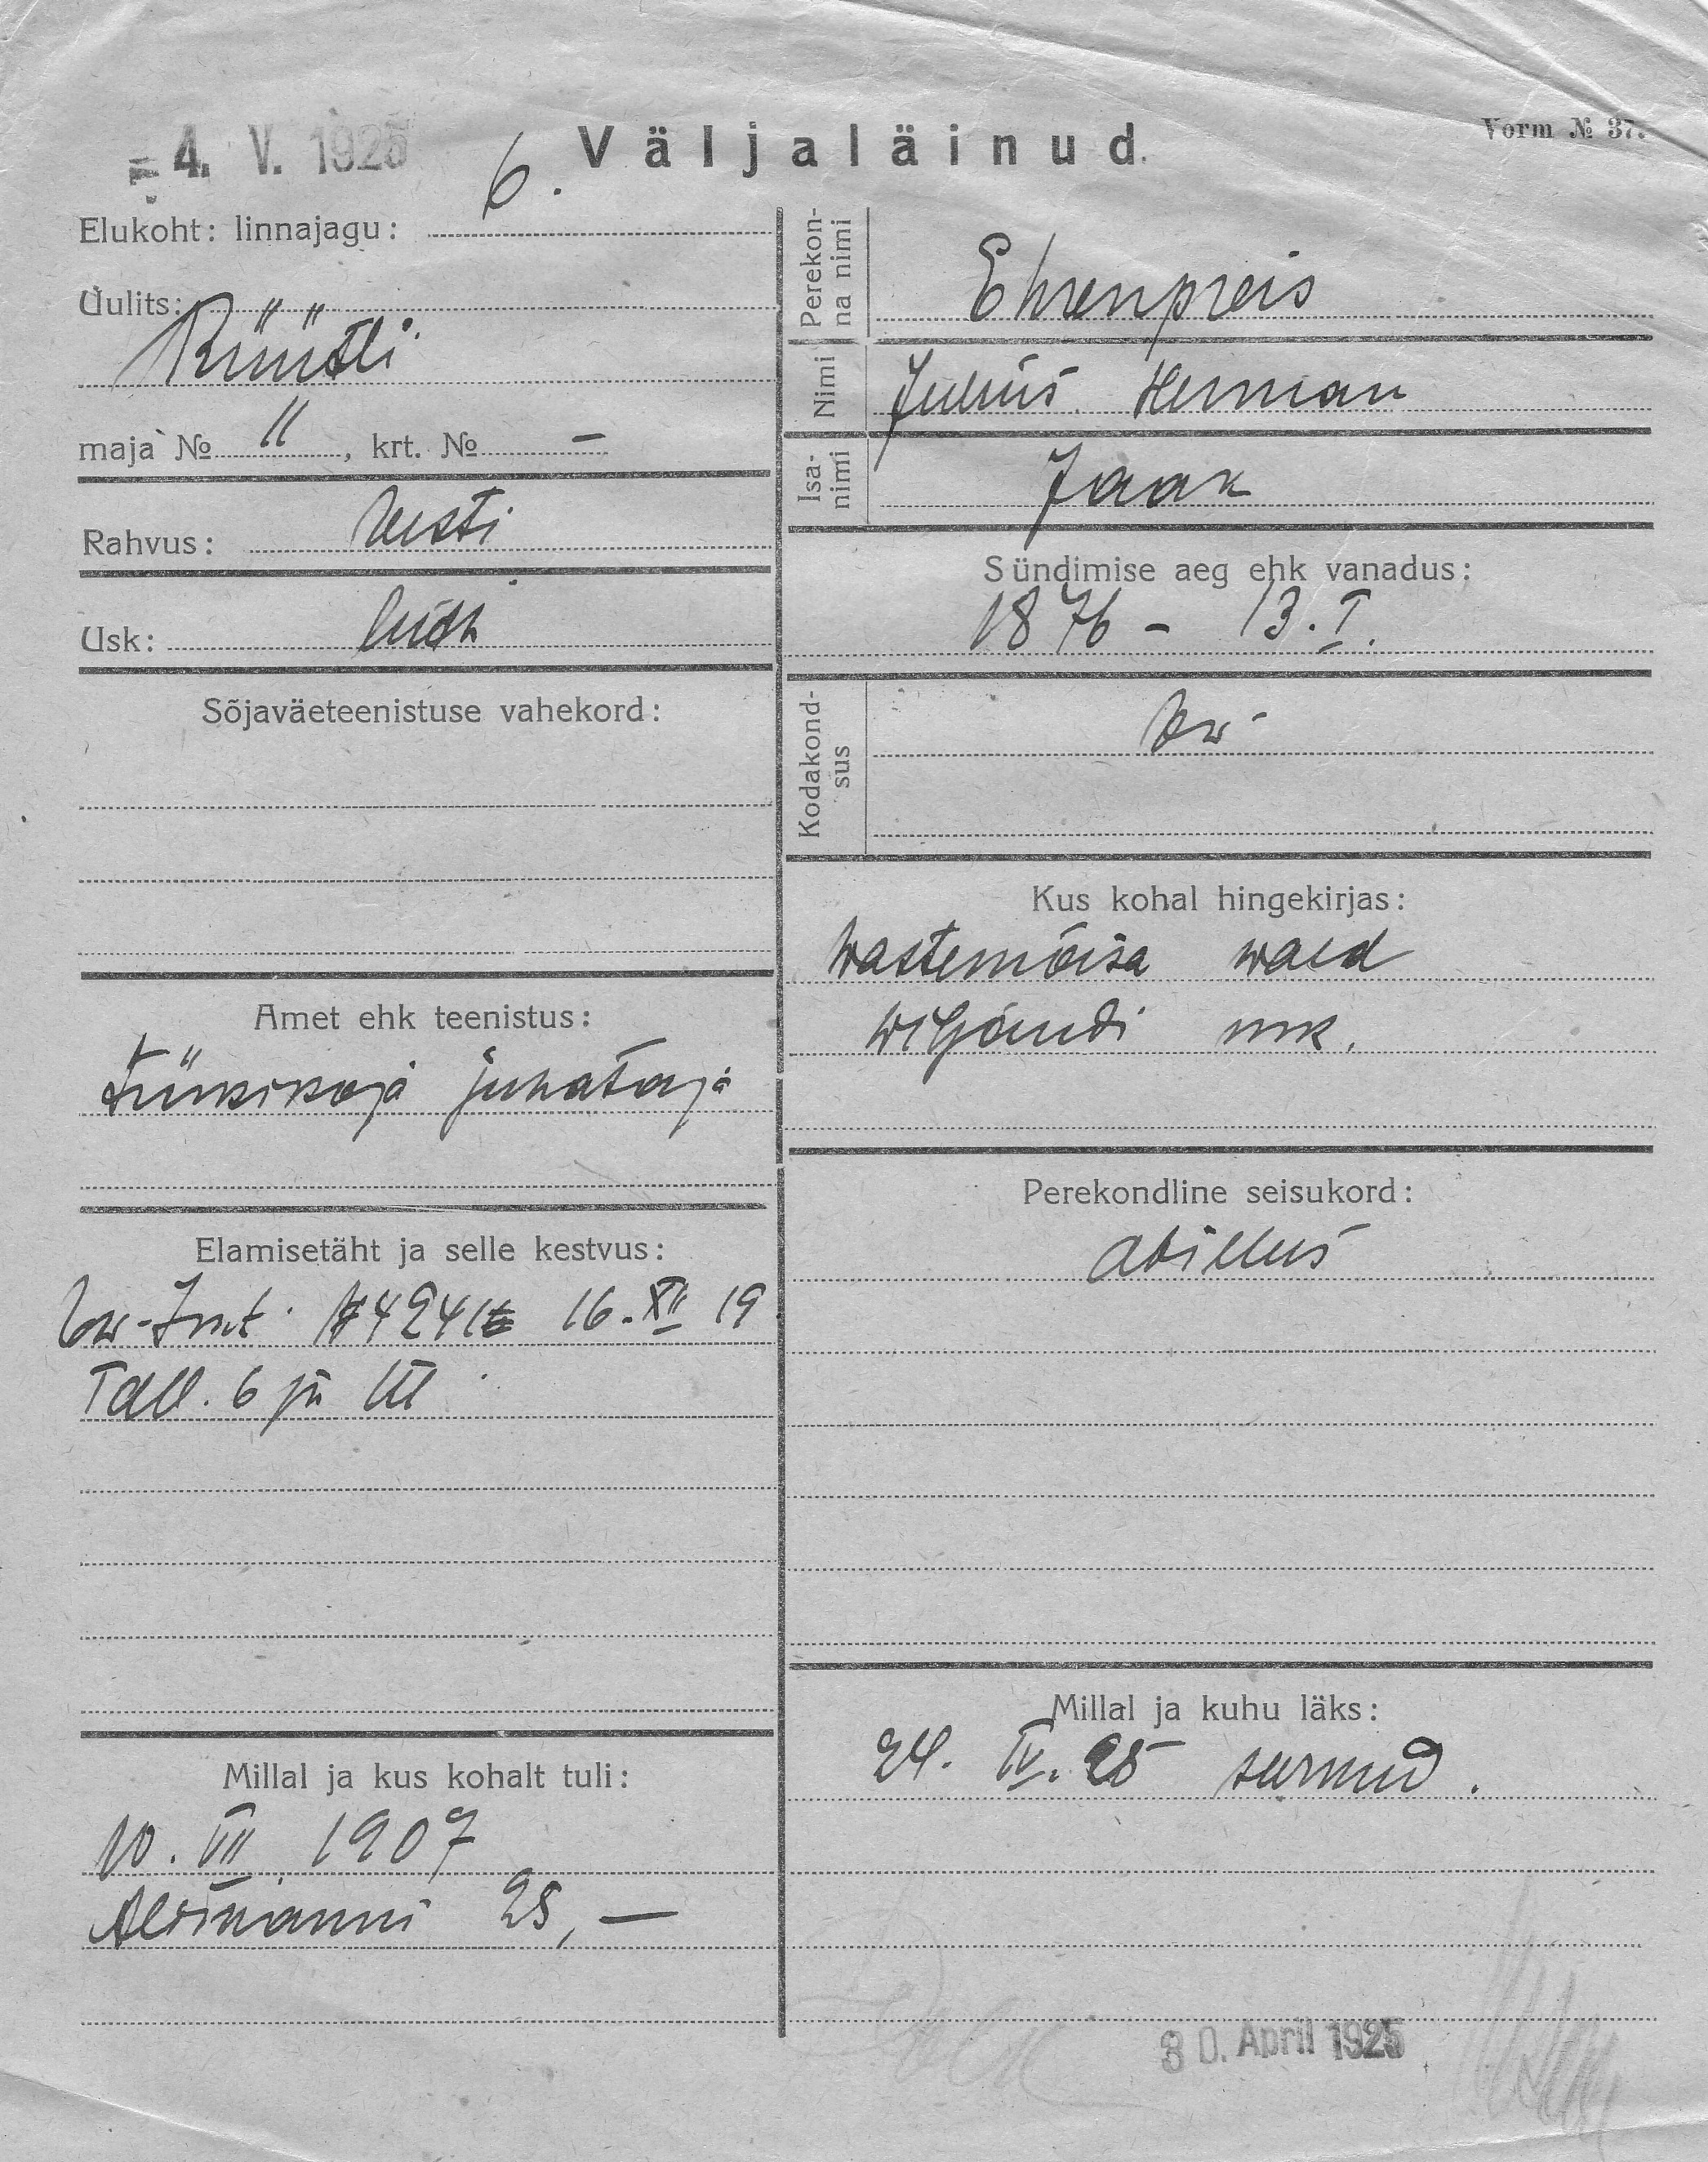 4. V. 1925
Väljaläinud.
Vorm № 37.
Elukoht: linnajagu: 6.
Uulits:
Rüütli
maja № 11, krt. № –
Rahvus: Eesti
Usk: luth
Sõjaväeteenistuse vahekord:
Amet ehk teenistus:
Trükikoja juhataja
Elamisetäht ja selle kestvus:
16. XII 19
Tall. 6 jsk
Millal ja kus kohalt tuli:
10. VII. 1907
Aleksandri 25, –
Perekon-
na nimi
Ehrenpreis
Nimi
Julius Herman
Isa-
nimi
Jaak
Sündimise aeg ehk vanadus:
1876 – 13. I.
Kodakond-
sus
Ew
Kus kohal hingekirjas:
Wastemõisa wald
Wiljandi mk.
Perekondline seisukord:
abielus
Millal ja kuhu läks:
24. IV. 25 surnud.
30. April 1925